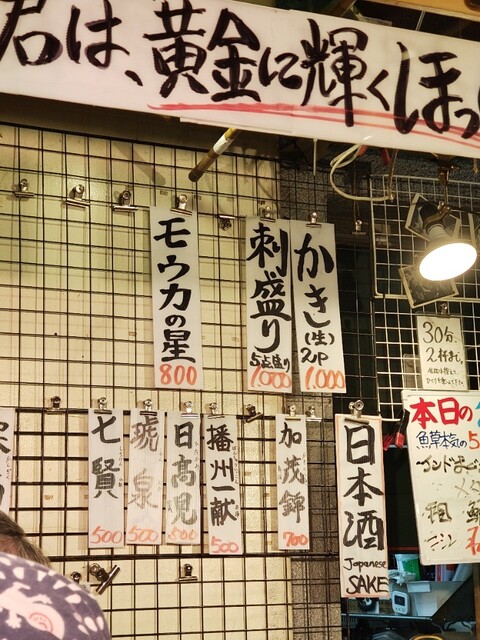 君は、黄金に輝くほっ
モウカの星
800
刺盛り
5点盛り
1,000
かき(生)
2P
1,000
30分、
2杯まで。
七賢
500
琥泉
500
日高見
500
播州一献
500
加茂錦
700
日本酒
Japanese
SAKE
本日の
魚草本気の5